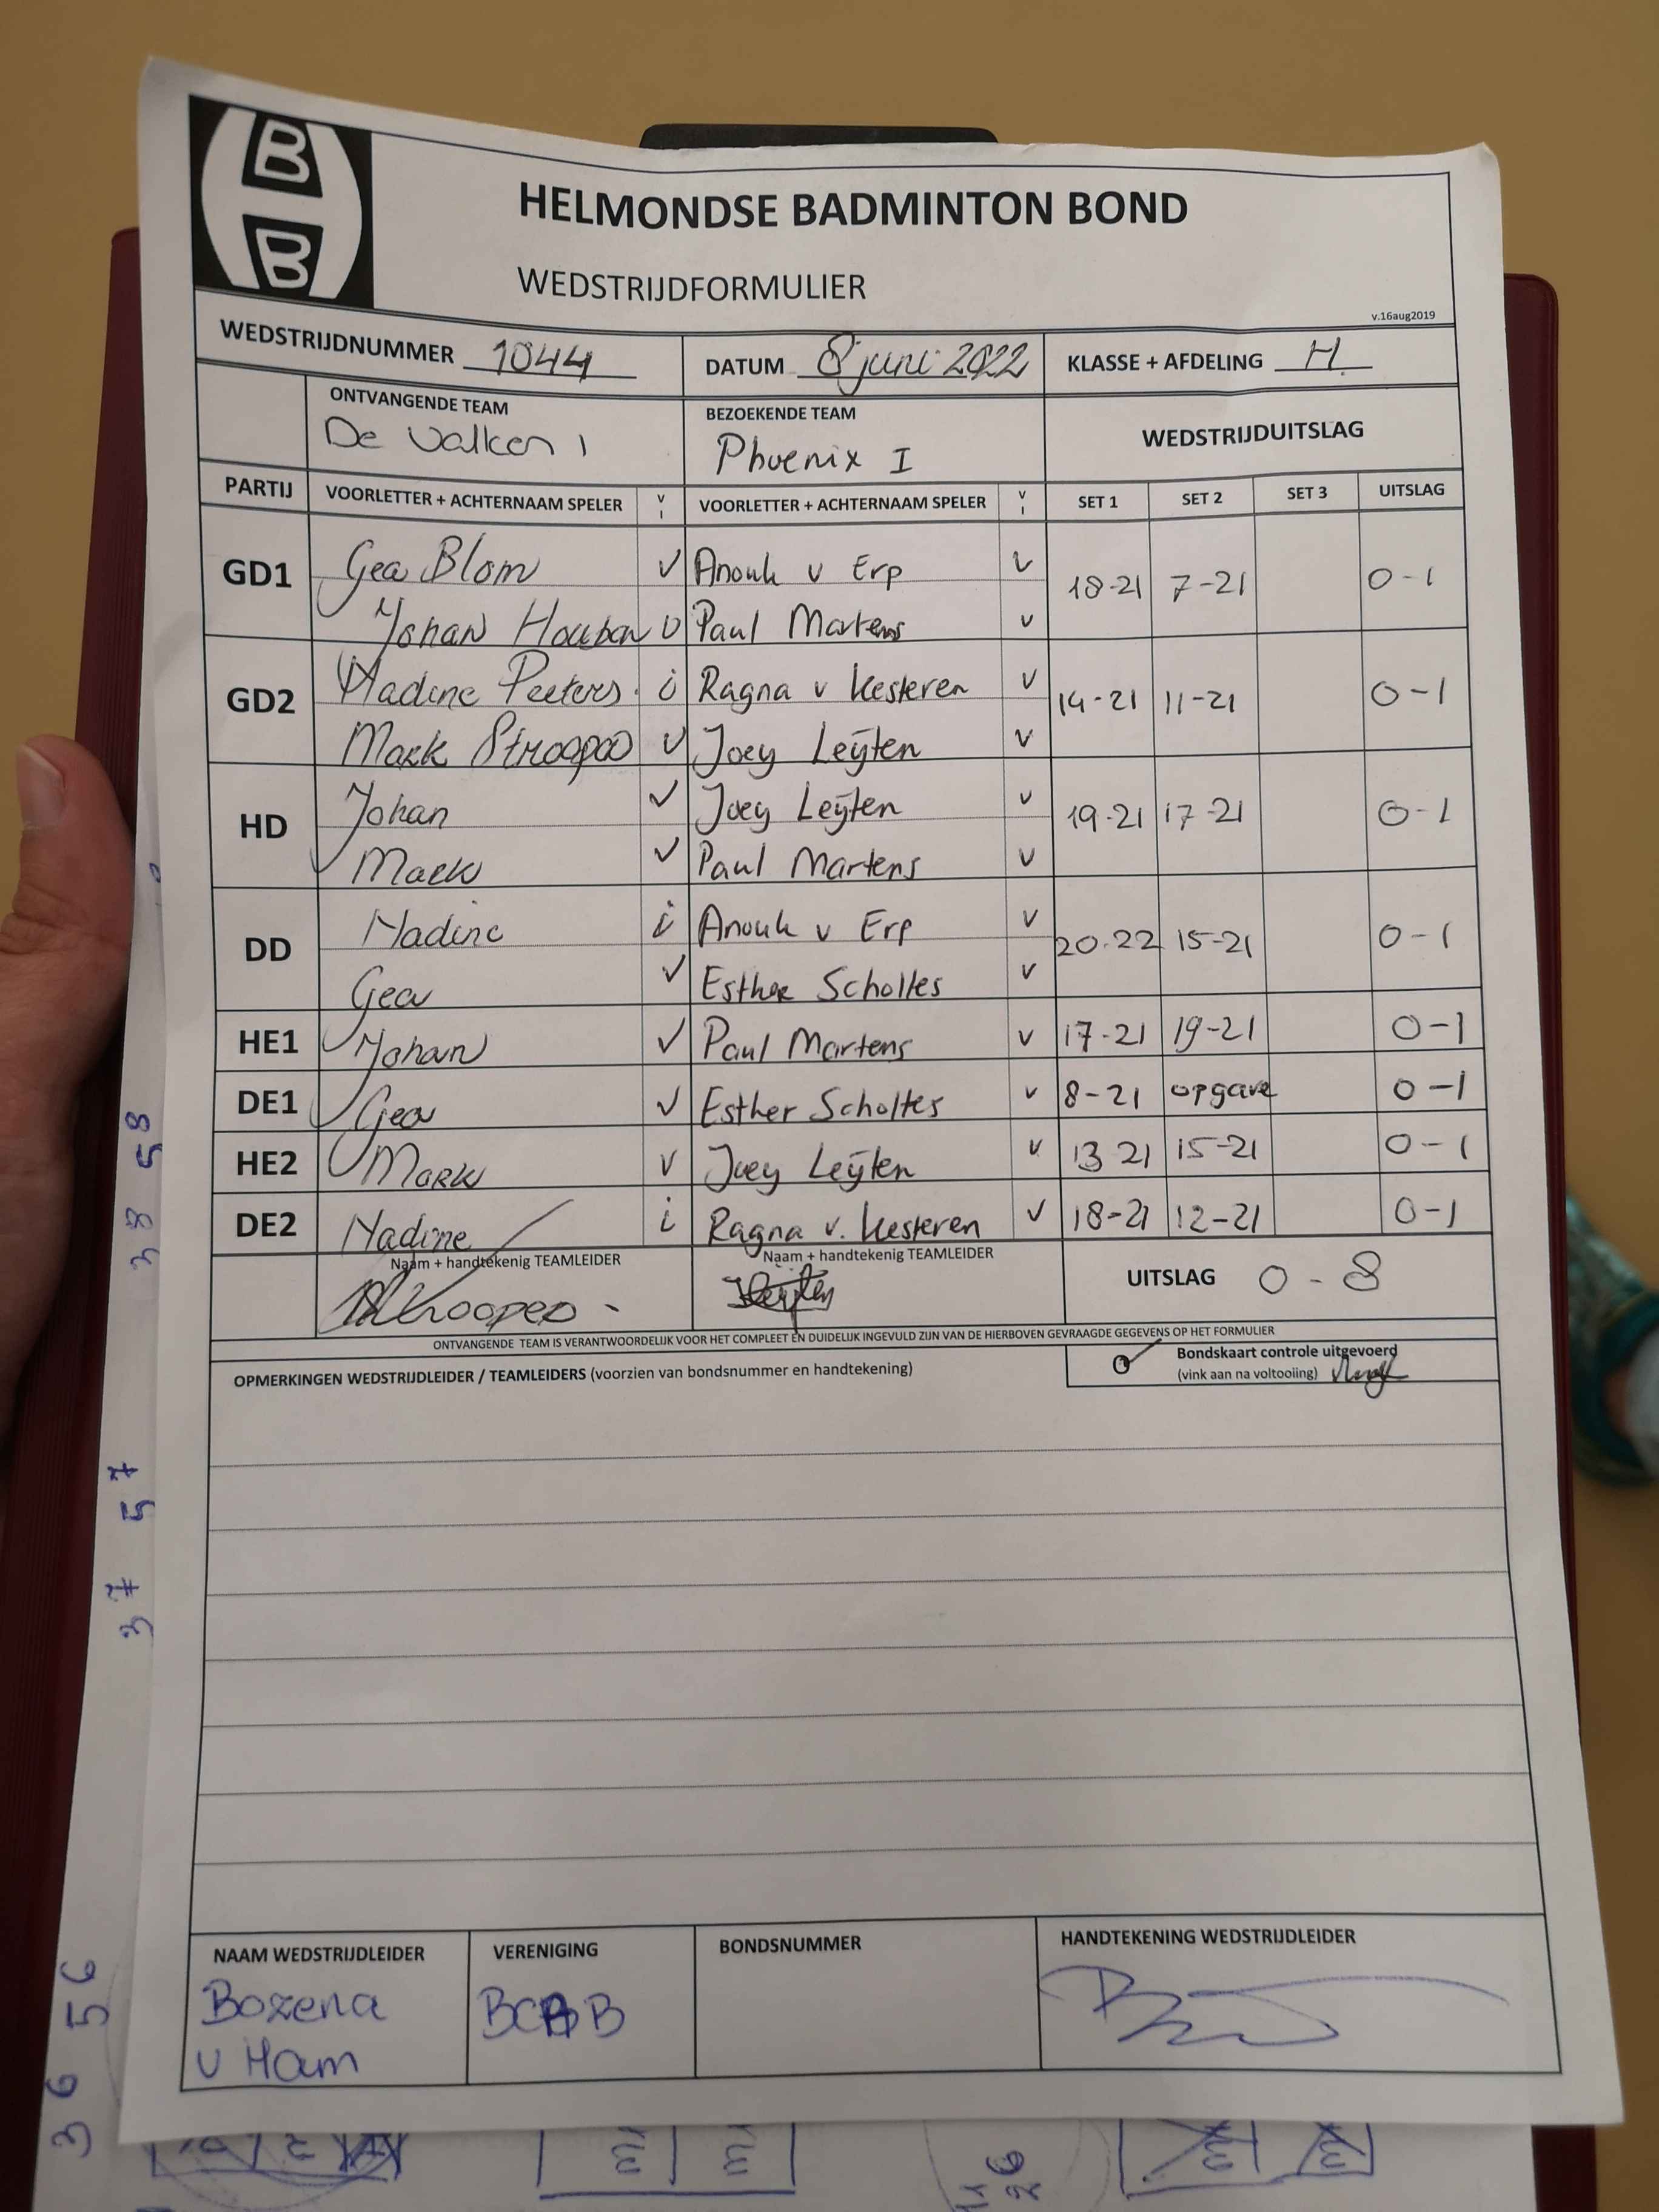 B
B
HELMONDSE BADMINTON BOND
WEDSTRIJDFORMULIER
v.16aug2019
WEDSTRIJDNUMMER 1044 DATUM 8 juni 2022 KLASSE + AFDELING H.
ONTVANGENDE TEAM BEZOEKENDE TEAM WEDSTRIJDUITSLAG
De Valken 1 Phoenix I
PARTIJ VOORLETTER + ACHTERNAAM SPELER V I VOORLETTER + ACHTERNAAM SPELER V I SET 1 SET 2 SET 3 UITSLAG
GD1 Gea Blom V Anouk v Erp V 18-21 7-21 0-1
Johan Houben V Paul Martens V
GD2 Nadine Peeters. i Ragna v Kesteren V 14-21 11-21 0-1
Mark Stroopoo V Joey Leijten V
HD Johan V Joey Leijten V 19-21 17-21 0-1
Mark V Paul Martens V
DD Nadine i Anouk v Erp V 20-22 15-21 0-1
Gea V Esther Scholtes V
HE1 Johan V Paul Martens V 17-21 19-21 0-1
DE1 Gea V Esther Scholtes V 8-21 opgave 0-1
HE2 Mark V Joey Leijten V 13 21 15-21 0-1
DE2 Nadine i Ragna v. Kesteren V 18-21 12-21 0-1
Naam + handtekenig TEAMLEIDER Naam + handtekenig TEAMLEIDER UITSLAG 0-8
ONTVANGENDE TEAM IS VERANTWOORDELIJK VOOR HET COMPLEET EN DUIDELIJK INGEVULD ZIJN VAN DE HIERBOVEN GEVRAAGDE GEGEVENS OP HET FORMULIER
OPMERKINGEN WEDSTRIJDLEIDER / TEAMLEIDERS (voorzien van bondsnummer en handtekening)
Bondskaart controle uitgevoerd
(vink aan na voltooiing)
NAAM WEDSTRIJDLEIDER VERENIGING BONDSNUMMER HANDTEKENING WEDSTRIJDLEIDER
Bozena
v Ham
38 58
37 57
36 56
26